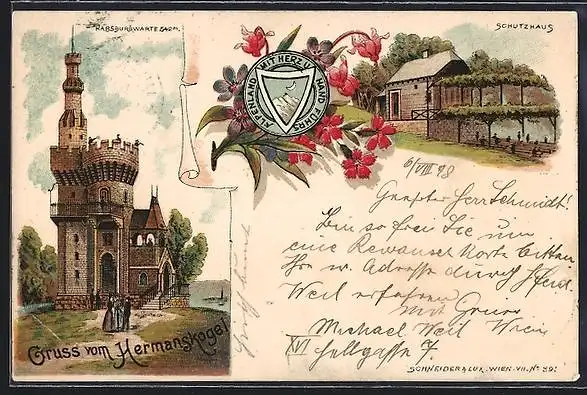 HABSBURGWARTE 542m.
SCHUTZHAUS
MIT HERZ U. HAND FÜR'S ALPENLAND
6/VIII 98
Geehrter Herr Schmidt!
Bin so frei Sie um
eine Revanch Karte bitten
Ihre w. Adresse durch Herrn
Weil erfahren
Mit Gruss
Michael Weil Wien
XVI Hellgasse 7
Gruss vom Hermanskogel
SCHNEIDER & LUX. WIEN. VII. No 39.